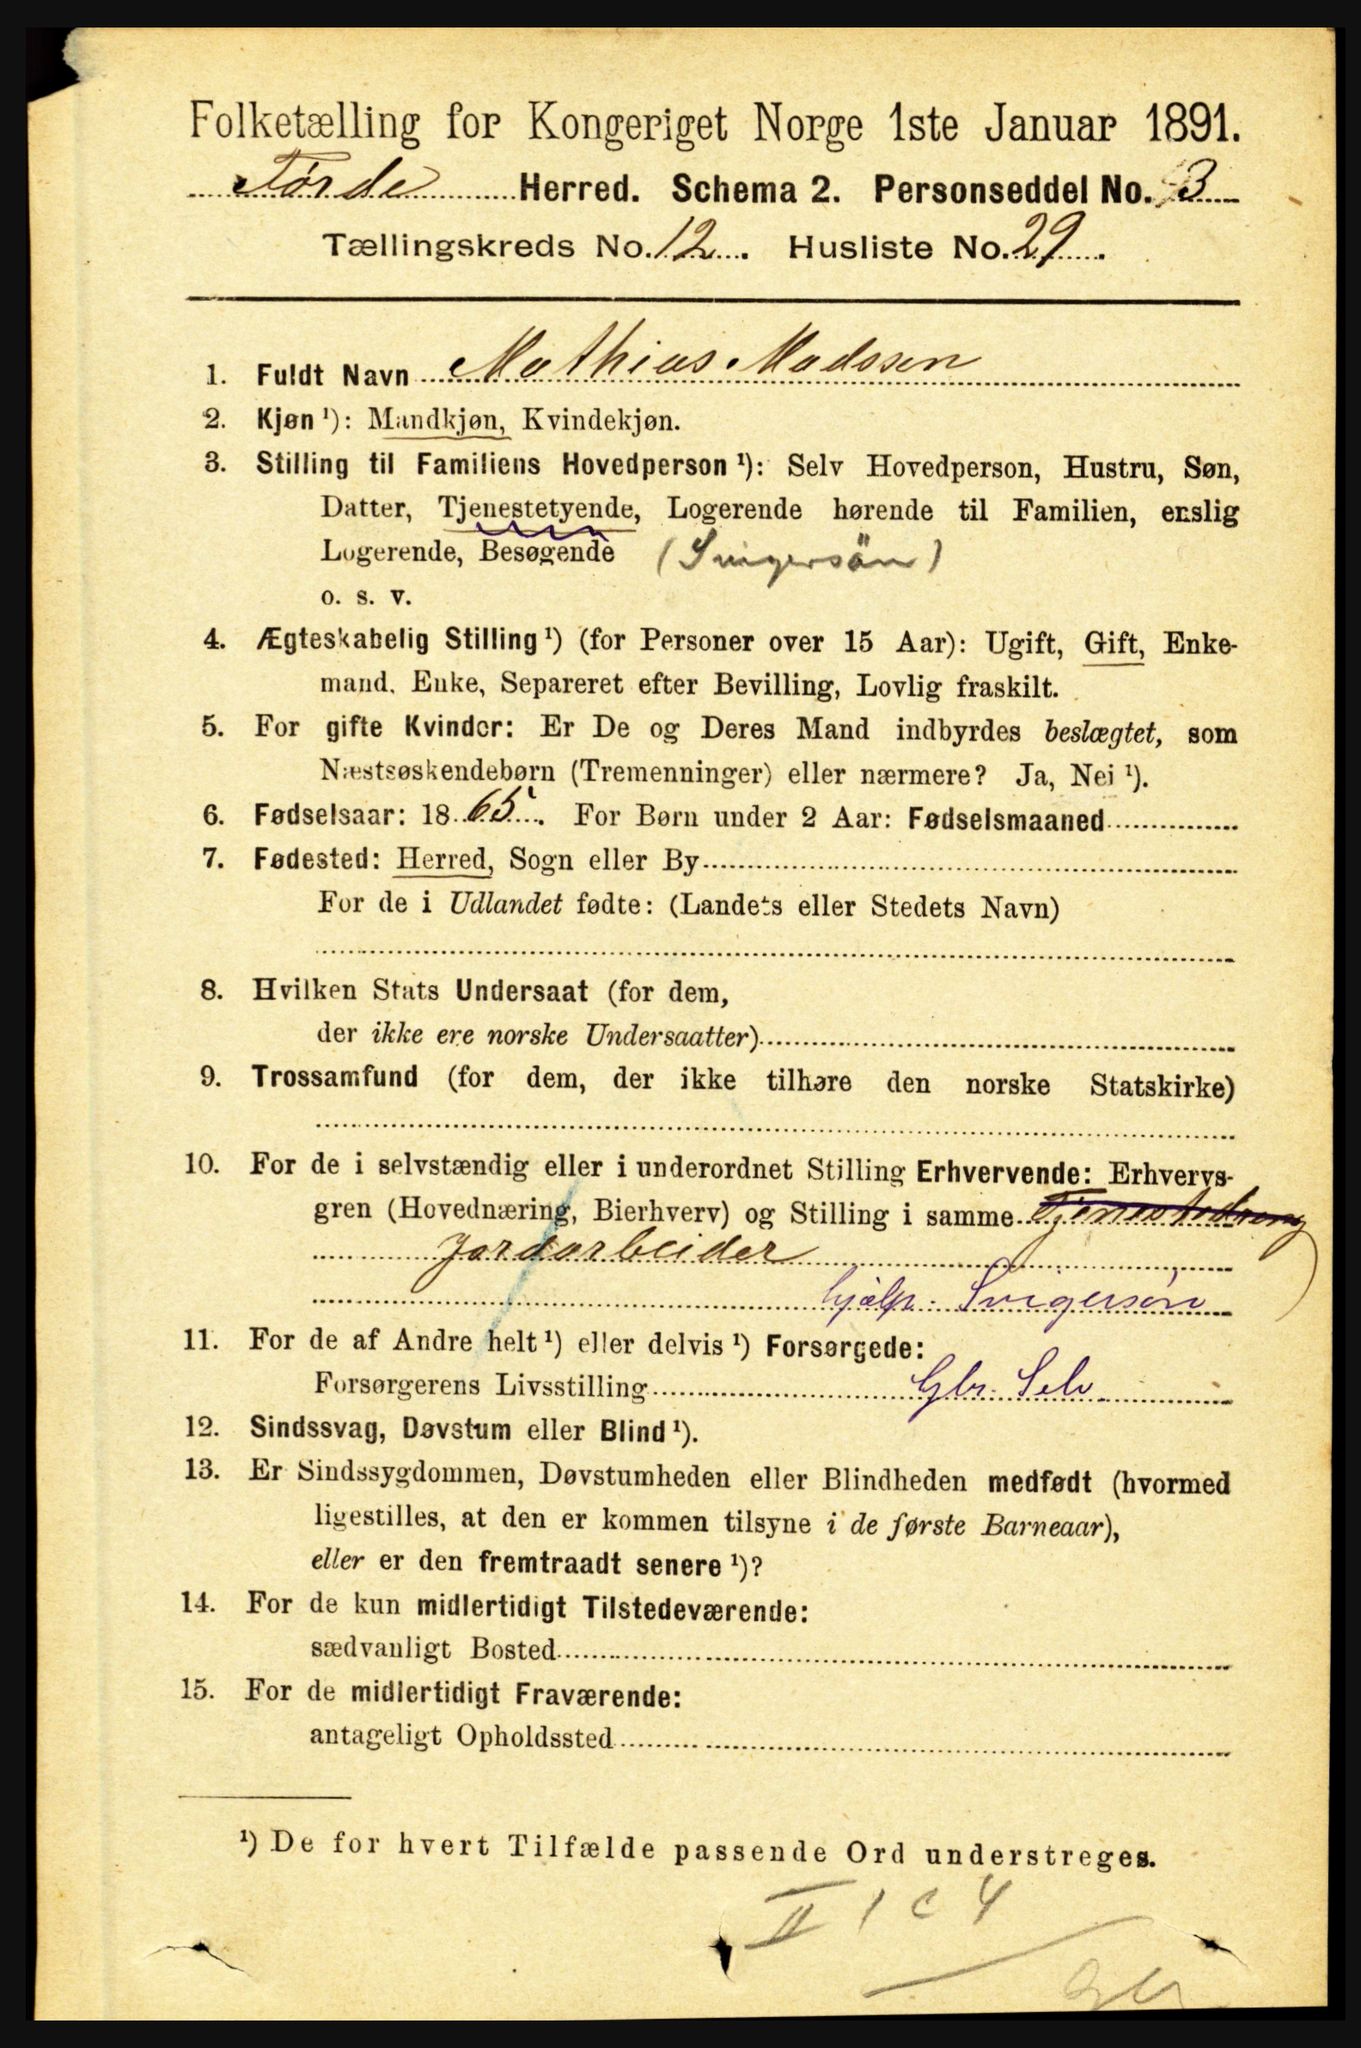 Folketælling for Kongeriget Norge 1ste Januar 1891.
Førde Herred. Schema 2. Personseddel No. 3
Tællingskreds No. 12. Husliste No. 29.
1. Fuldt Navn Mathias Madssen
2. Kjøn ¹): Mandkjøn, Kvindekjøn.
3. Stilling til Familiens Hovedperson ¹): Selv Hovedperson, Hustru, Søn,
Datter, Tjenestetyende, Logerende hørende til Familien, enslig
Logerende, Besøgende (Svigersön)
o. s. v.
4. Ægteskabelig Stilling ¹) (for Personer over 15 Aar): Ugift, Gift, Enke-
mand, Enke, Separeret efter Bevilling, Lovlig fraskilt.
5. For gifte Kvinder: Er De og Deres Mand indbyrdes beslægtet, som
Næstsøskendebørn (Tremenninger) eller nærmere? Ja, Nei ¹).
6. Fødselsaar: 1865. For Børn under 2 Aar: Fødselsmaaned
7. Fødested: Herred, Sogn eller By
For de i Udlandet fødte: (Landets eller Stedets Navn)
8. Hvilken Stats Undersaat (for dem,
der ikke ere norske Undersaatter)
9. Trossamfund (for dem, der ikke tilhøre den norske Statskirke)
10. For de i selvstændig eller i underordnet Stilling Erhvervende: Erhvervs-
gren (Hovednæring, Bierhverv) og Stilling i samme
Jordarbeider
hjælp. Svigersøn
11. For de af Andre helt ¹) eller delvis ¹) Forsørgede:
Forsørgerens Livsstilling Gbr. Selv
12. Sindssvag, Døvstum eller Blind ¹).
13. Er Sindssygdommen, Døvstumheden eller Blindheden medfødt (hvormed
ligestilles, at den er kommen tilsyne i de første Barneaar),
eller er den fremtraadt senere ¹)?
14. For de kun midlertidigt Tilstedeværende:
sædvanligt Bosted
15. For de midlertidigt Fraværende:
antageligt Opholdssted
¹) De for hvert Tilfælde passende Ord understreges.
II 1 c 4